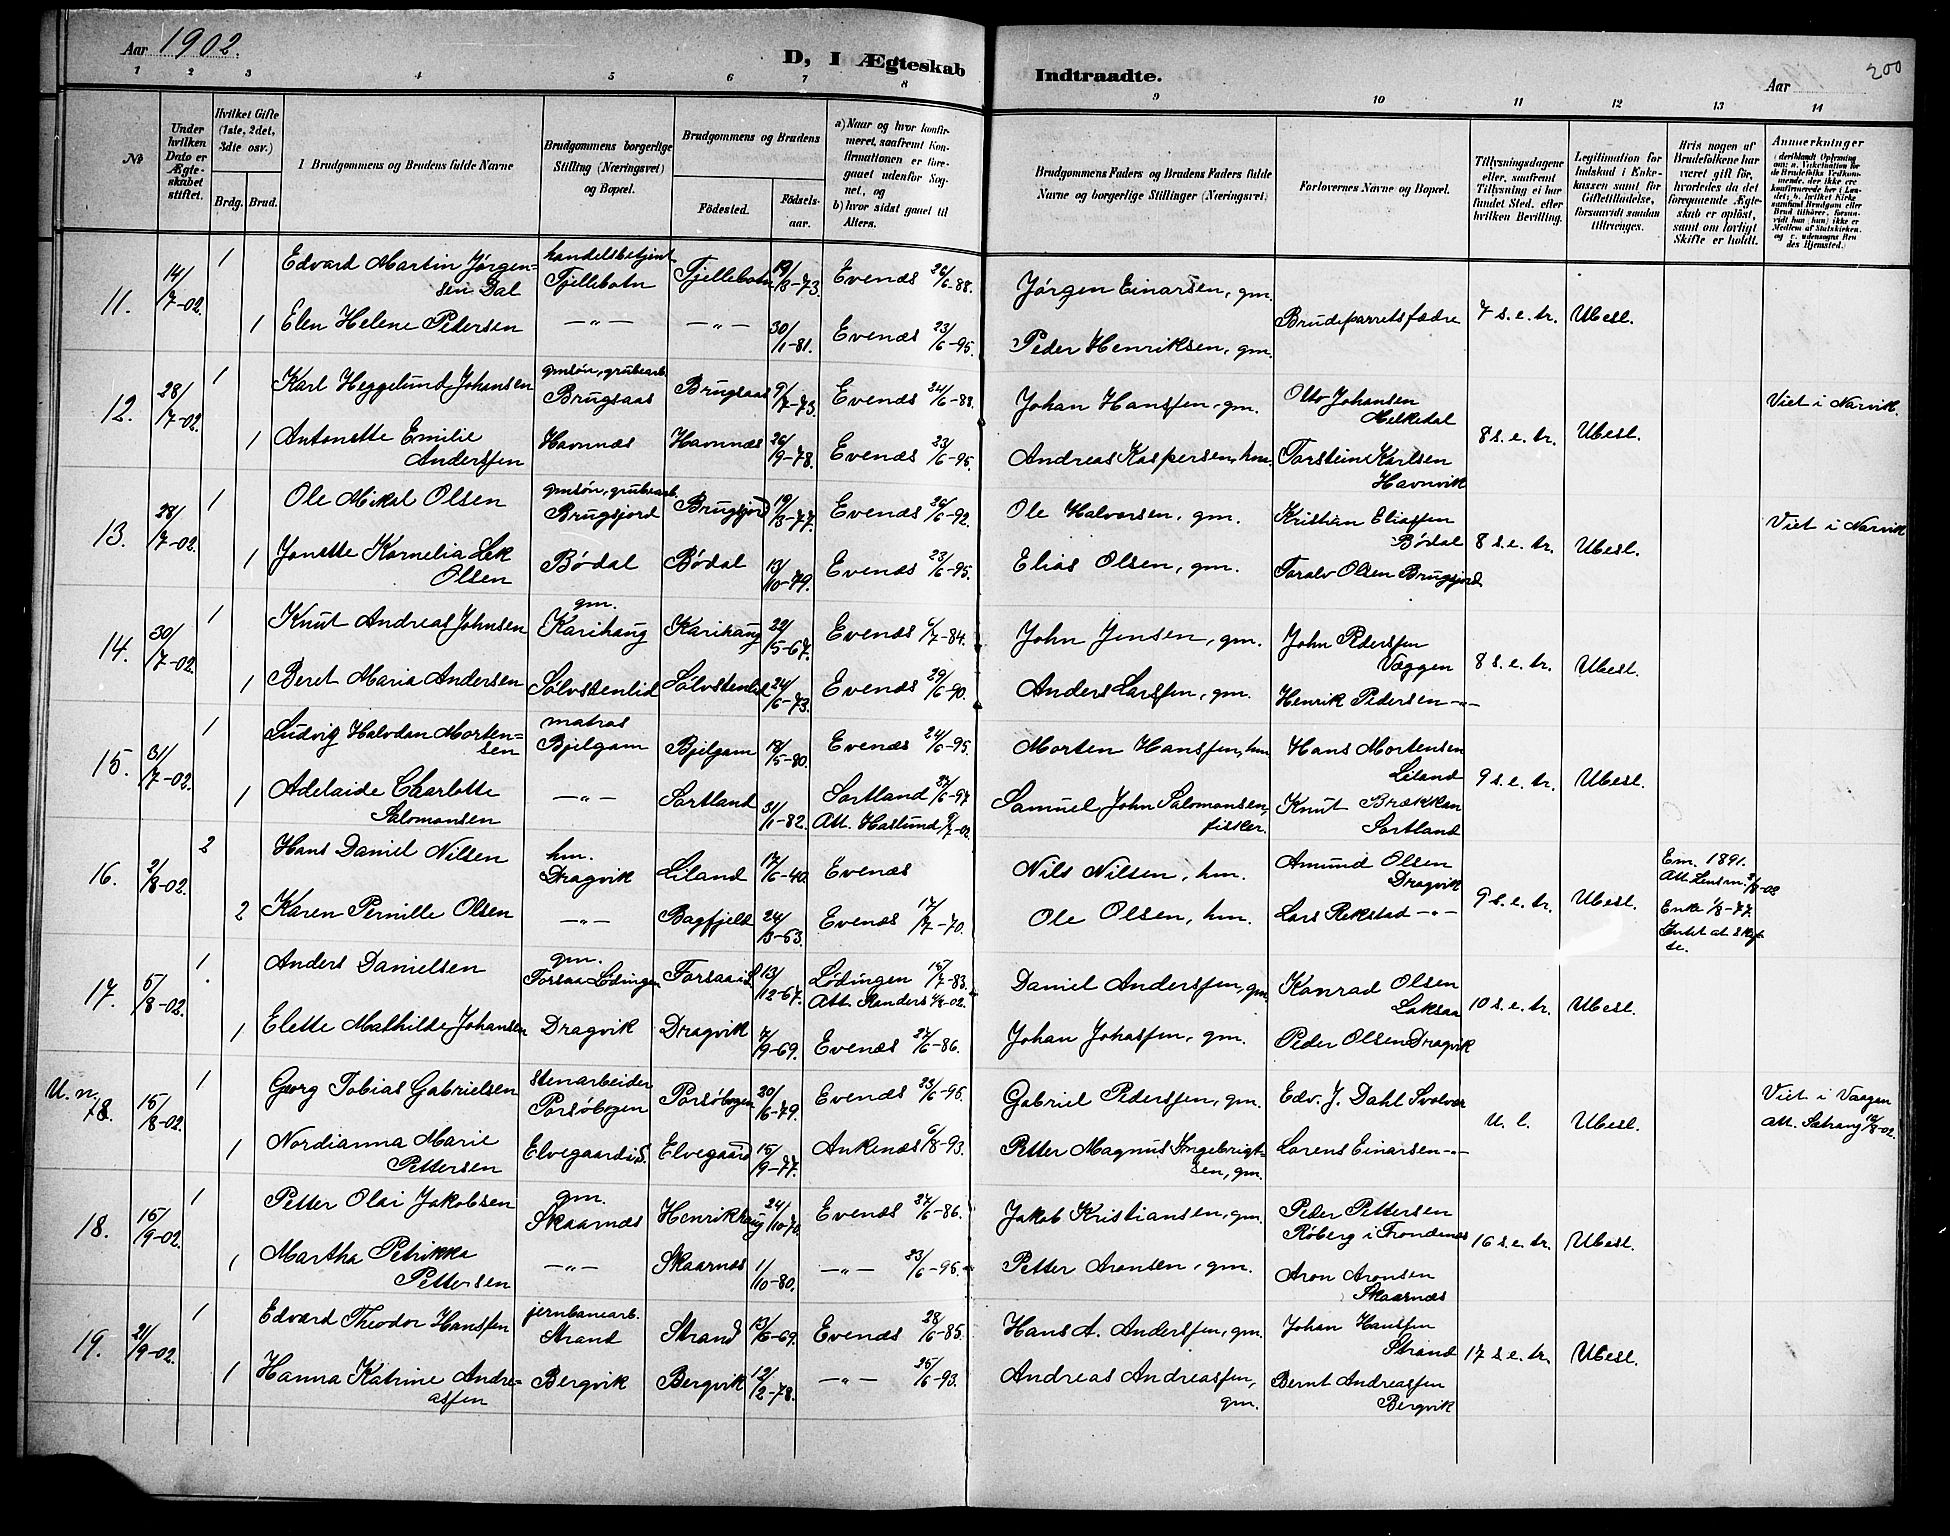 Aar 1902.
D, I Ægteskab
Indtraadte.
Aar
200
1 2 3 4 5 6 7 8 9 10 11 12 13 14
No
Under hvilken Dato er Ægteskabet stiftet.
Hvilket Gifte (1ste, 2det, 3die osv.)
Brdg. Brud.
I Brudgommens og Brudens fulde Navne
Brudgommens borgerlige Stilling (Næringsvei) og Bopæl.
Brudgommens og Brudens
Fødested.
Fødselsaar.
a) Naar og hvor konfirmeret, saafremt Konfirmationen er foregaaet udenfor Sognet, og
b) hvor sidst gaaet til Alters.
Brudgommens Faders og Brudens Faders fulde Navne og borgerlige Stillinger (Næringsvei)
Forlovernes Navne og Bopæl.
Tillysningsdagene eller, saafremt Tillysning ei har fundet Sted, efter hvilken Bevilling.
Legitimation for Indskud i Enkekassen samt for Giftetilladelse, forsaavidt saadan tiltrænges.
Hvis nogen af Brudefolkene har været gift før, hvorledes da det foregaaende Ægteskab er opløst, samt om lovligt Skifte er holdt.
Anmerkninger
11. 14/7-02. 1 Edvard Martin Jørgensen Dal handelsbetjent Fjellebotn Fjellebotn 19/3-73. Evenæs 26/6-88. Jørgen Einarsen, gm. Brudeparrets fædre 7 s. e. tr. Ubesl.
1 Elen Helene Pedersen —„— —„— 30/1-81. Evenæs 23/6-95. Peder Henriksen, gm.
12. 28/7-02. 1 Karl Heggelund Johansen gmsøn, grubearb. Brugsaas Brugsaas 9/7-73. Evenæs 24/6-88. Johan Hanssen, gm. Otto Johansen Melkedal 8 s. e. tr. Ubesl. Viet i Narvik.
1 Antonette Emilie Anderssen Havnnæs Havnnæs 26/9-78. Evenæs 23/6-95. Andreas Kaspersen, hm. Torstein Karlsen Havnvik
13. 28/7-02. 1 Ole Mikal Olsen gmsøn, grubearb. Brugsjord Brugsjord 19/3-77. Evenæs 26/6-92. Ole Halvorsen, gm. Kristian Eliassen Bødal 8 s. e. tr. Ubesl. Viet i Narvik
1 Jonette Kornelia Lek Olsen Bødal Bødal 13/10-79. Evenæs 23/6-95. Elias Olsen, gm. Toralv Olsen Brugsjord
14. 30/7-02. 1 Knut Andreas Johnsen gm. Karihaug Karihaug 22/5-67. Evenæs 6/7-84. John Jensen, gm. John Pederssen Væggen 8 s. e. tr. Ubesl.
1 Beret Maria Andersen Sølvstenlid Sølvstenlid 24/6-73. Evenæs 29/6-90. Anders Larssen, gm. Henrik Pedersen —„—
15. 31/7-02. 1 Ludvig Halvdan Mortensen matros Bjelgam Bjelgam 18/5-80. Evenæs 24/6-95. Morten Hanssen, hm Hans Mortensen Liland 9 s. e. tr. Ubesl.
1 Adelaide Charlotte Salomonsen —„— Sortland 31/1-82. Sortland 27/6-97 Att. Haslund 9/7-02. Samuel John Salomonsen, fisker. Knut Brækkan Sortland
16. 2/8-02. 2 Hans Daniel Nilsen hm. Dragvik Liland 17/6-40. Evenæs Nils Nilsen, hm. Amund Olsen Dragvik 9 s. e. tr. Ubesl. Em. 1891. Att. Lensm. 2/8-02
2 Karen Pernille Olsen —„— Bagfjeld 24/3-53. Evenæs 17/7-70. Ole Olsen, hm. Lars Rekstad —„— Enke 1/8-77. Intet at skifte.
17. 5/8-02. 1 Anders Danielsen gm. Forsaa Lødingen Forsaa i L. 13/12-67. Lødingen 15/7-83. Daniel Anderssen, gm Konrad Olsen Laksaa 10 s. e. tr. Ubesl.
1 Elette Mathilde Johansen Dragvik Dragvik 7/9-69. Evenæs 27/6-86. Johan Johassen, gm. Peder Olsen Dragvik
U. n. 78. 15/8-02. 1 Georg Tobias Gabrielsen stenarbeider Porsöbogen Porsöbogen 20/6-79. Evenæs 23/6-95. Gabriel Pederssen, gm. Edv. J. Dahl Svolvær U. l. Ubesl. Viet i Vaagen
1 Nordianna Marie Pettersen Elvegaard i S. Elvegaard 15/9-77. Ankenæs 6/8-93. Petter Magnus Ingebrigtsen, gm. Lorens Einarsen —„—
18. 15/9-02. 1 Petter Olai Jakobsen gm. Skaarnæs Henrikhaug 24/10-70. Evenæs 27/6-86. Jakob Kristiansen, gm. Peder Pettersen Röberg i Trondenæs 16 s. e. tr. Ubesl.
1 Martha Petrikka Pettersen —„— Skaarnæs 1/10-80. —„— 23/6-95. Petter Aronsen, gm. Aron Aronsen Skaarnæs
19. 21/9-02. 1 Edvard Theodor Hanssen jernbanearb. Strand Strand 13/6-69. Evenæs 28/6-85. Hans A. Anderssen, gm. Johan Hanssen Strand 17 s. e. tr. Ubesl.
1 Hanna Katrine Andreassen Bergvik Bergvik 12/2-78. —„— 25/6-93. Andreas Andreassen, gm. Bernt Andreassen Bergvik